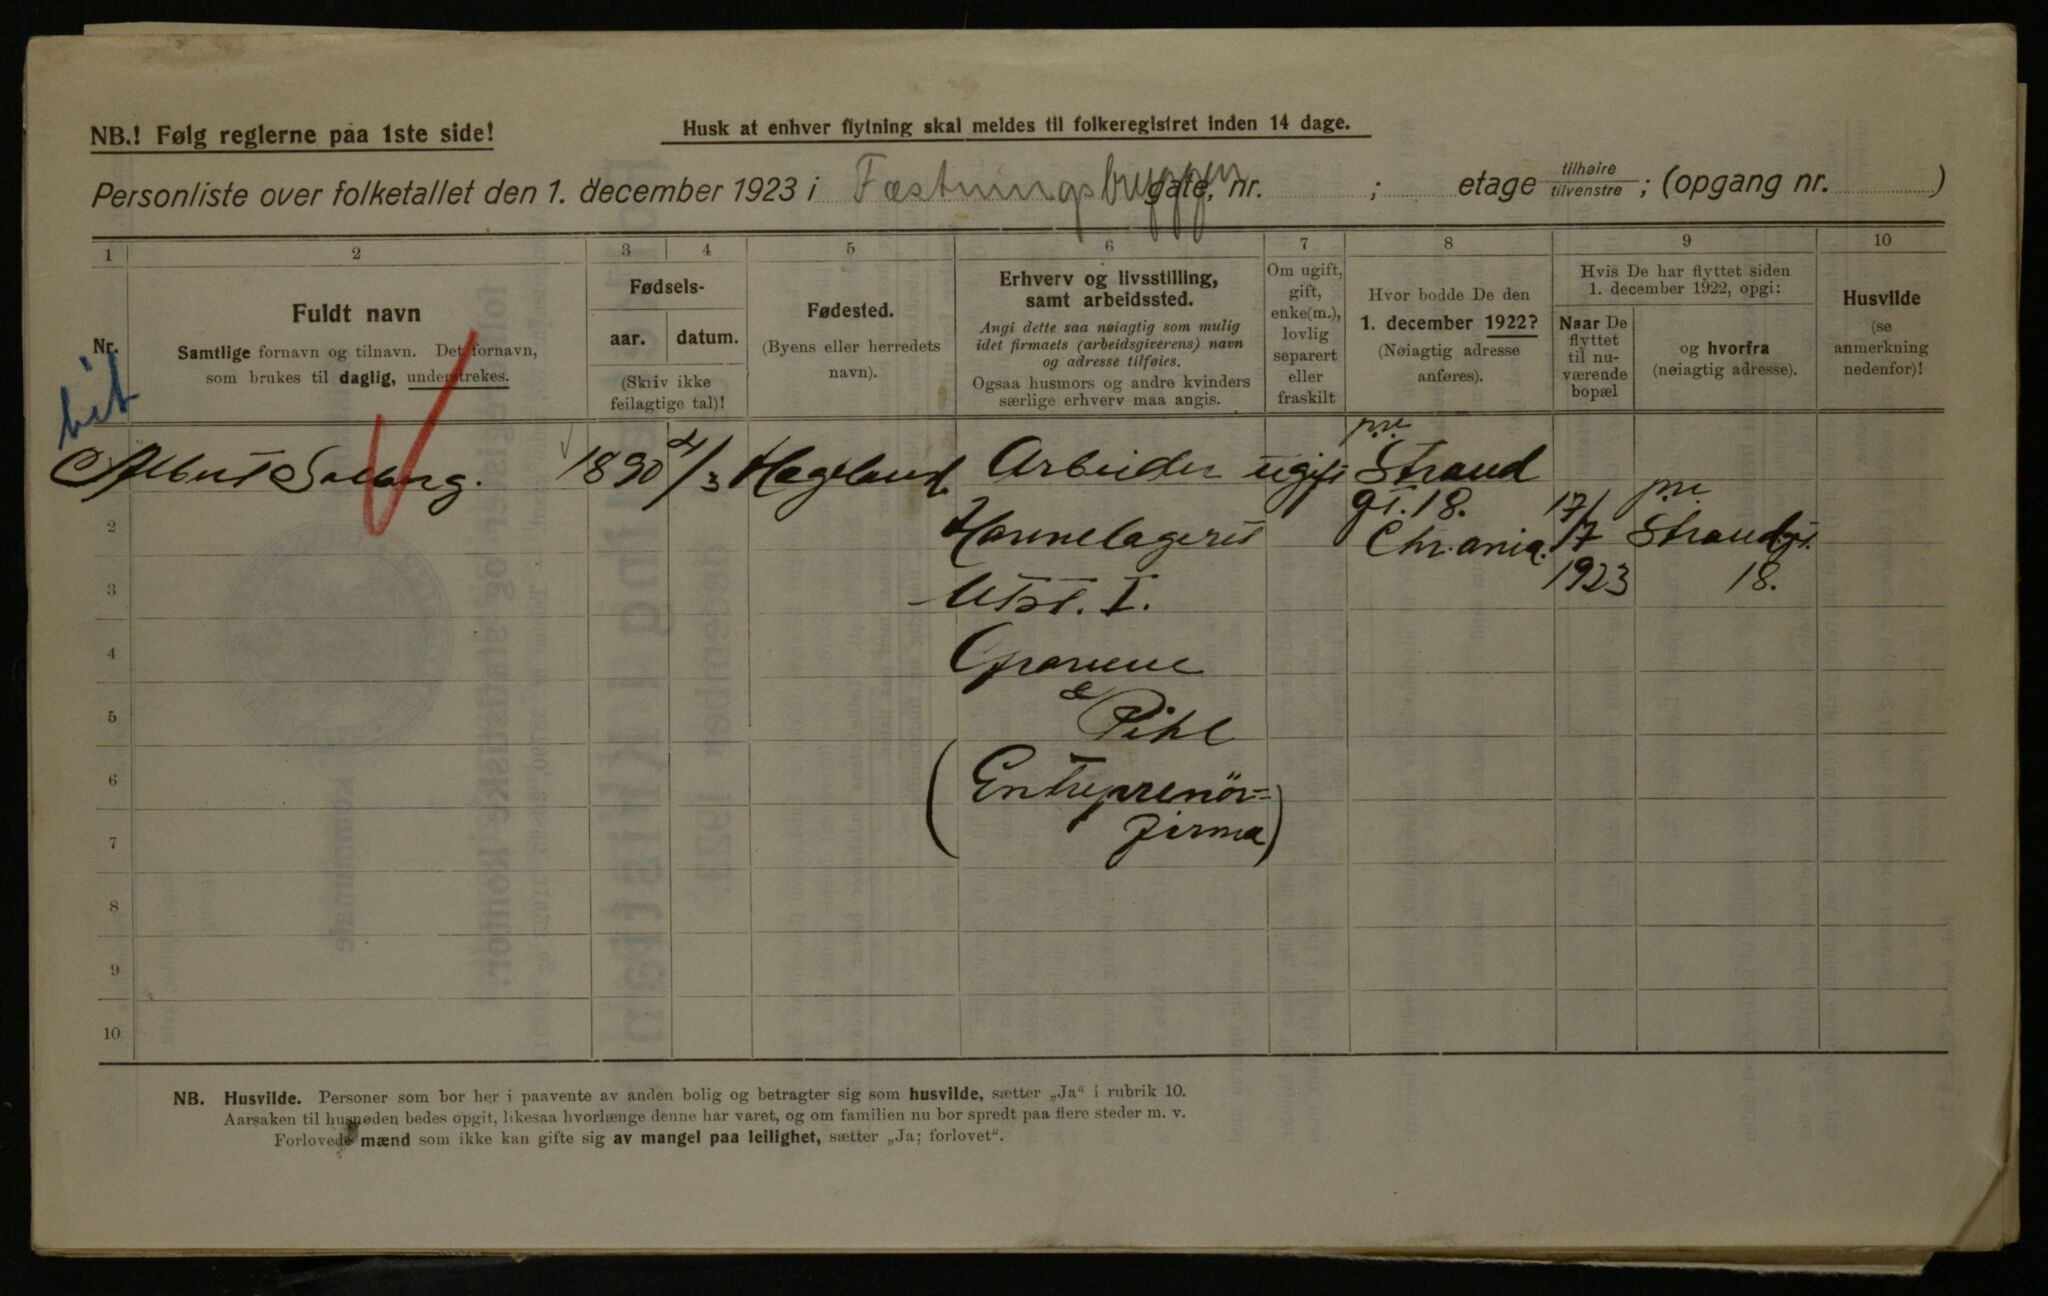 NB.! Følg reglerne paa 1ste side!
Husk at enhver flytning skal meldes til folkeregistret inden 14 dage.
Personliste over folketallet den 1. december 1923 i Fæstningsbryggen gate, nr. ; etage tilhøire tilvenstre ; (opgang nr. )
1 2 3 4 5 6 7 8 9 10
Nr.
Fuldt navn
Samtlige fornavn og tilnavn. Det fornavn,
som brukes til daglig, understrekes.
Fødsels-
aar. datum.
(Skriv ikke
feilagtige tal)!
Fødested.
(Byens eller herredets
navn).
Erhverv og livsstilling,
samt arbeidssted.
Angi dette saa nøiagtig som mulig
idet firmaets (arbeidsgiverens) navn
og adresse tilføies.
Ogsaa husmors og andre kvinders
særlige erhverv maa angis.
Om ugift,
gift,
enke(m.),
lovlig
separert
eller
fraskilt
Hvor bodde De den
1. december 1922?
(Nøiagtig adresse
anføres).
Hvis De har flyttet siden
1. december 1922, opgi:
Naar De
flyttet
til nu-
værende
bopæl
og hvorfra
(nøiagtig adresse).
Husvilde
(se
anmerkning
nedenfor)!
Albert Solberg. 1890 4/3 Hægeland. Arbeider ugift Strand
gt. 18.
Chr.ania.
17/7
1923
Strandgt.
18.
2 Havnelageret
3 Utst. I.
4 Grønne
&
5 Pihl
6 (Entreprenör=
7 firma)
8
9
10
NB. Husvilde. Personer som bor her i paavente av anden bolig og betragter sig som husvilde, sætter „Ja“ i rubrik 10.
Aarsaken til husnøden bedes opgit, likesaa hvorlænge denne har varet, og om familien nu bor spredt paa flere steder m. v.
Forlovede mænd som ikke kan gifte sig av mangel paa leilighet, sætter „Ja; forlovet“.